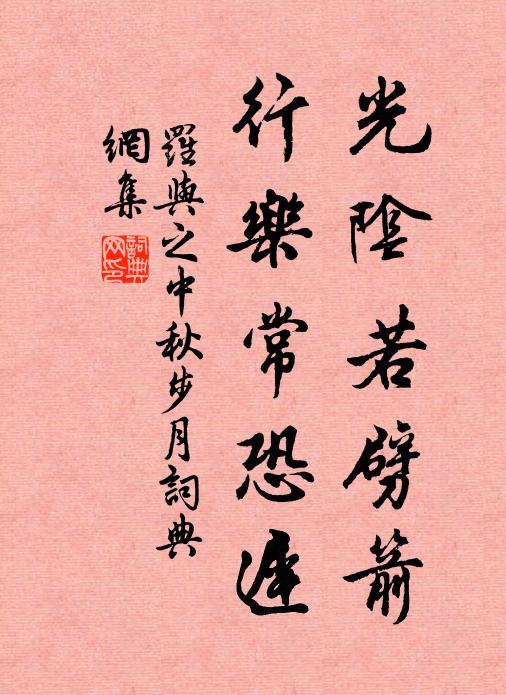 光陰若劈箭
行樂常恐遲
羅與之中秋步月詞典
網集
詞典網印